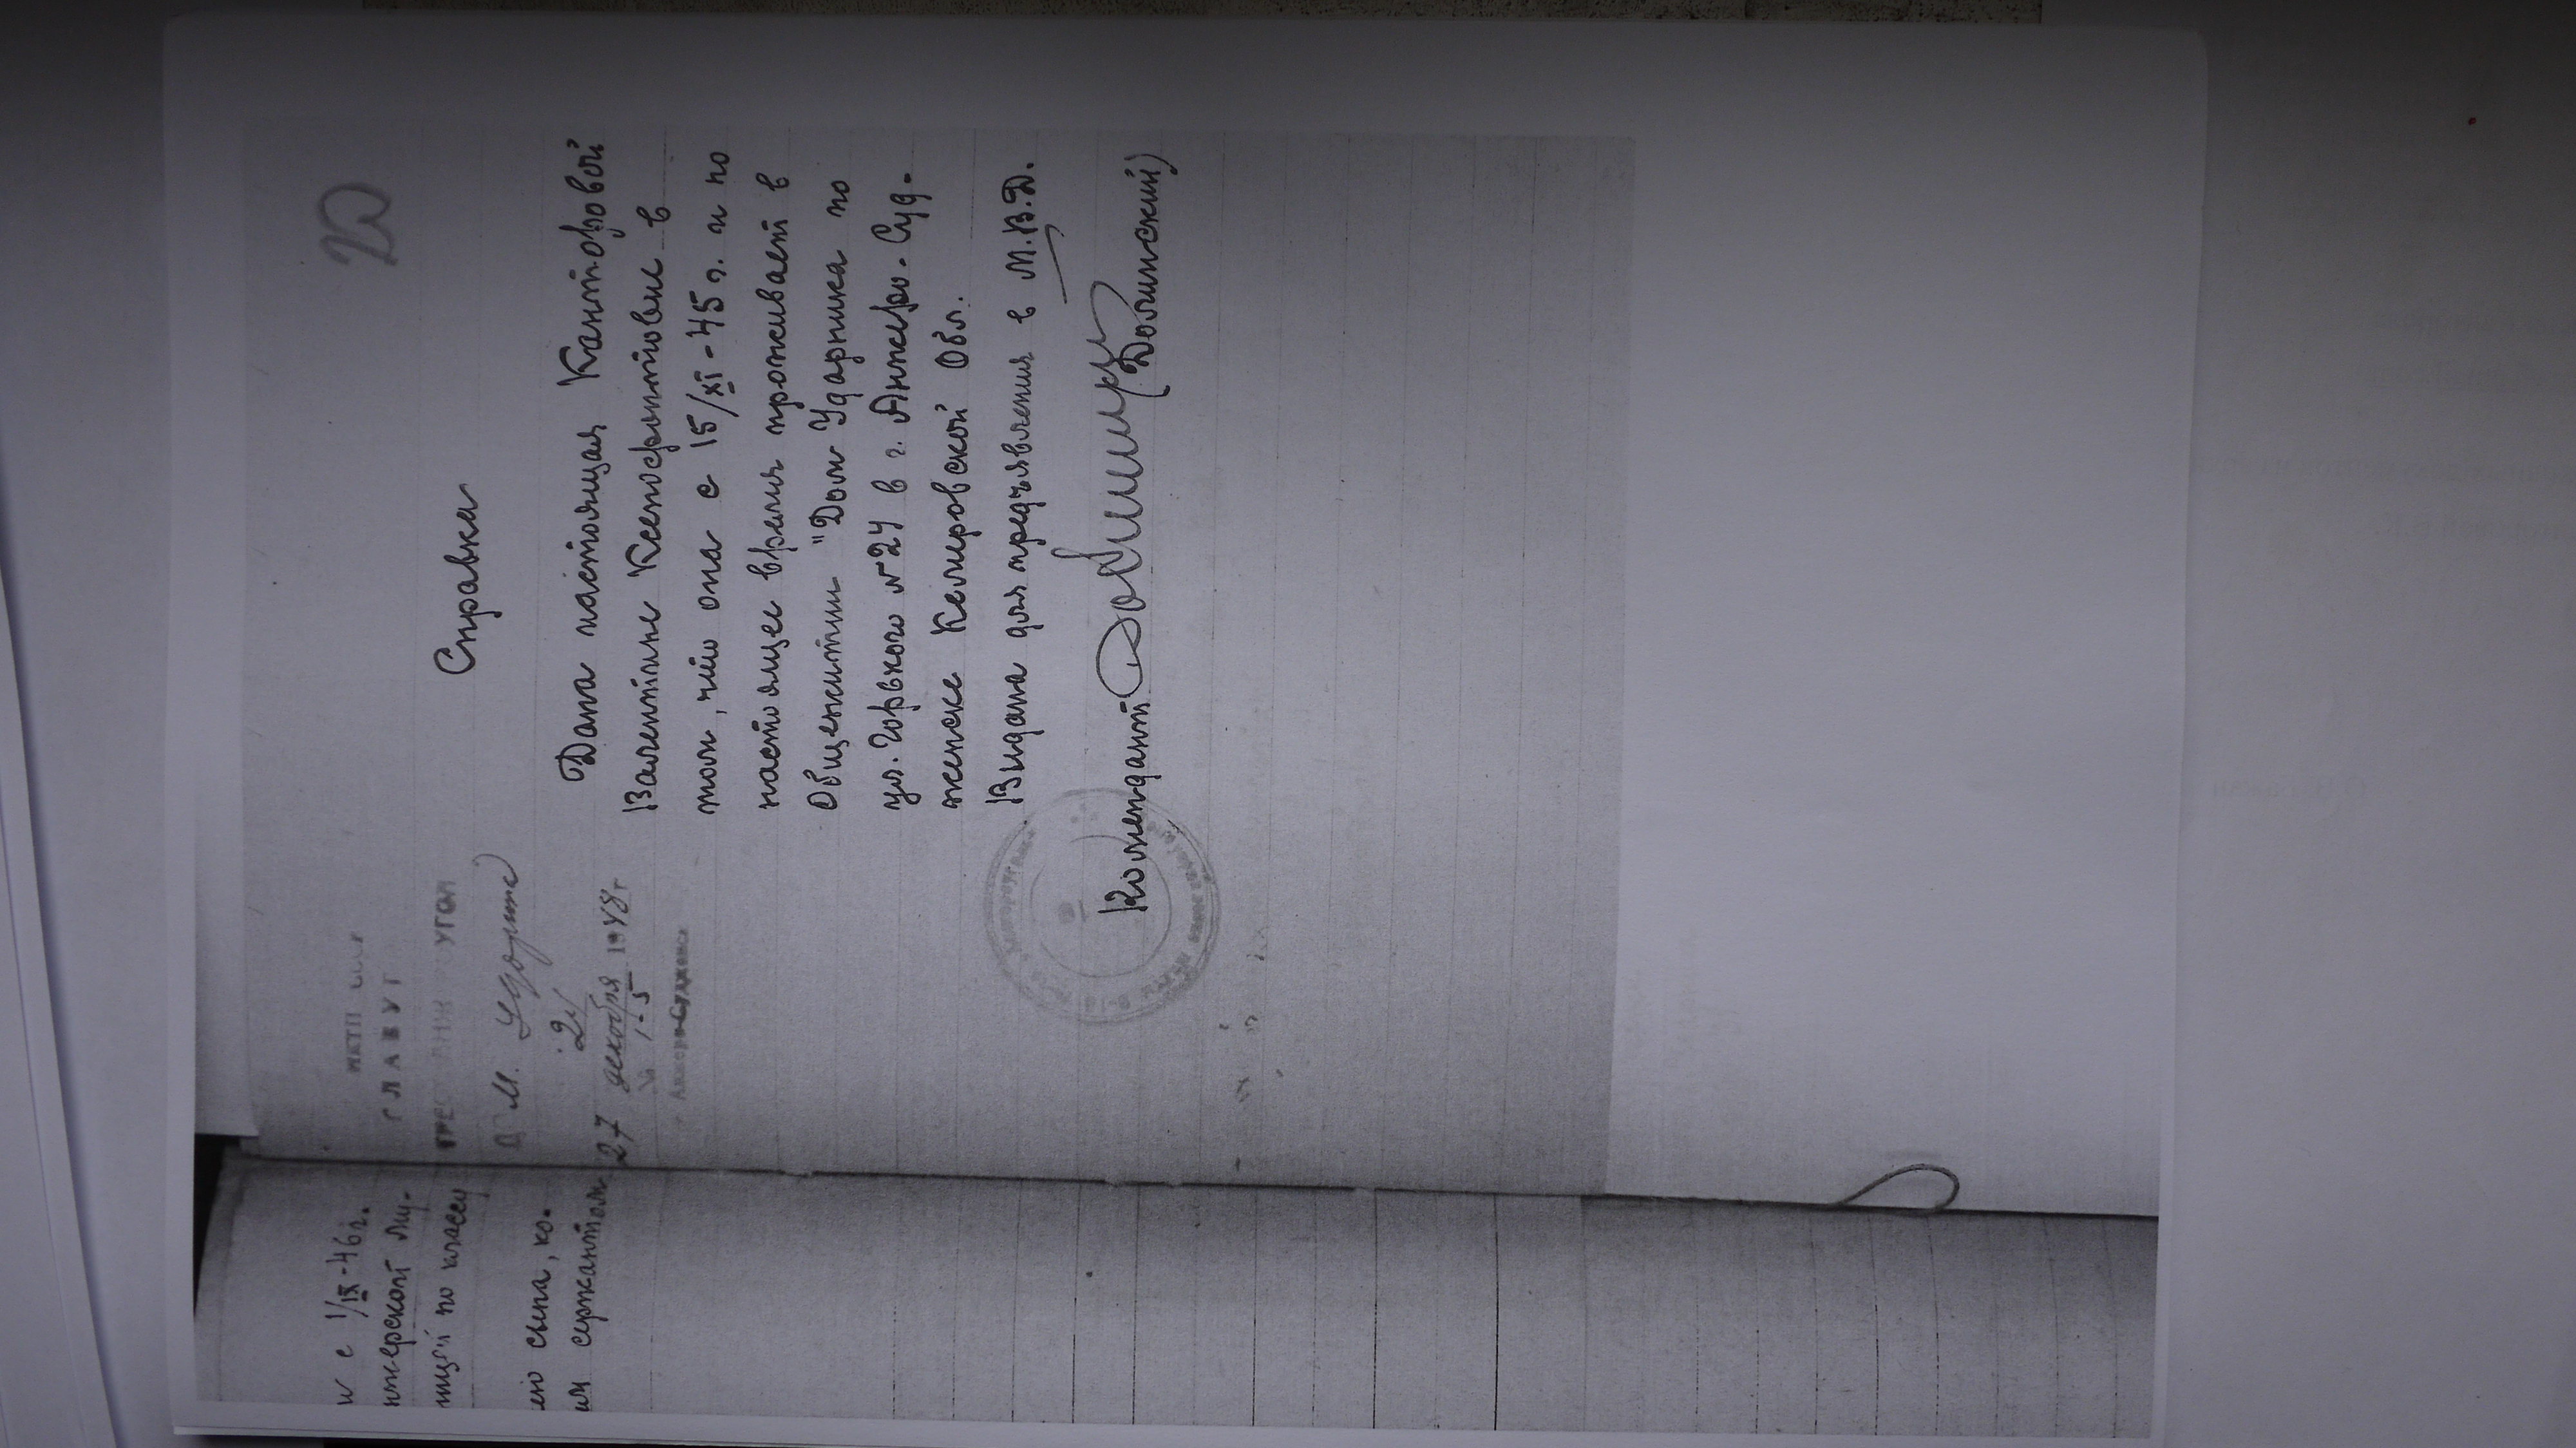 20
ГЛАВУГ
Д. М. Ударника
27 декабря 1948 г
№ 1-5
Анжеро-Судженск
Справка
Дана настоящая Канторовой
Валентине Ксенофонтовне в
том, что она с 15/XI-45 г. и по
настоящее время проживает в
Общежитии "Дом Ударника по
ул. Горького №24 в г. Анжеро-Суд-
женске Кемеровской Обл.
Выдана для предъявления в М.В.Д.
Комендант
(Долинский)
с 1/IX-46 г.
по классу
сына, ко-
сержантом